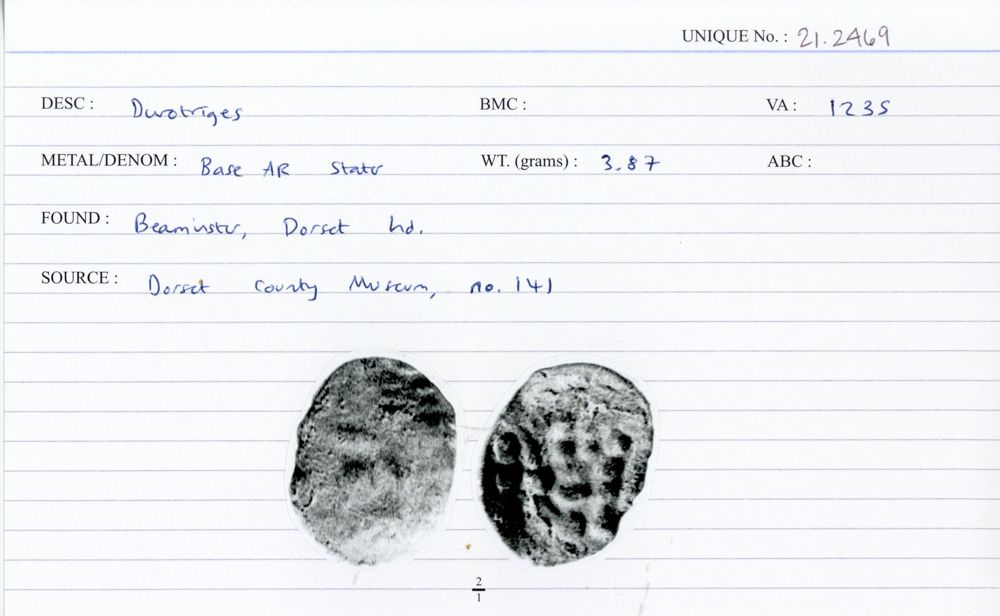 UNIQUE No. : 21.2469
DESC : Durotriges BMC : VA : 1235
METAL/DENOM : Base AR Stater WT. (grams) : 3.87 ABC :
FOUND : Beaminster, Dorset hd.
SOURCE : Dorset County Museum, no. 141
2
1